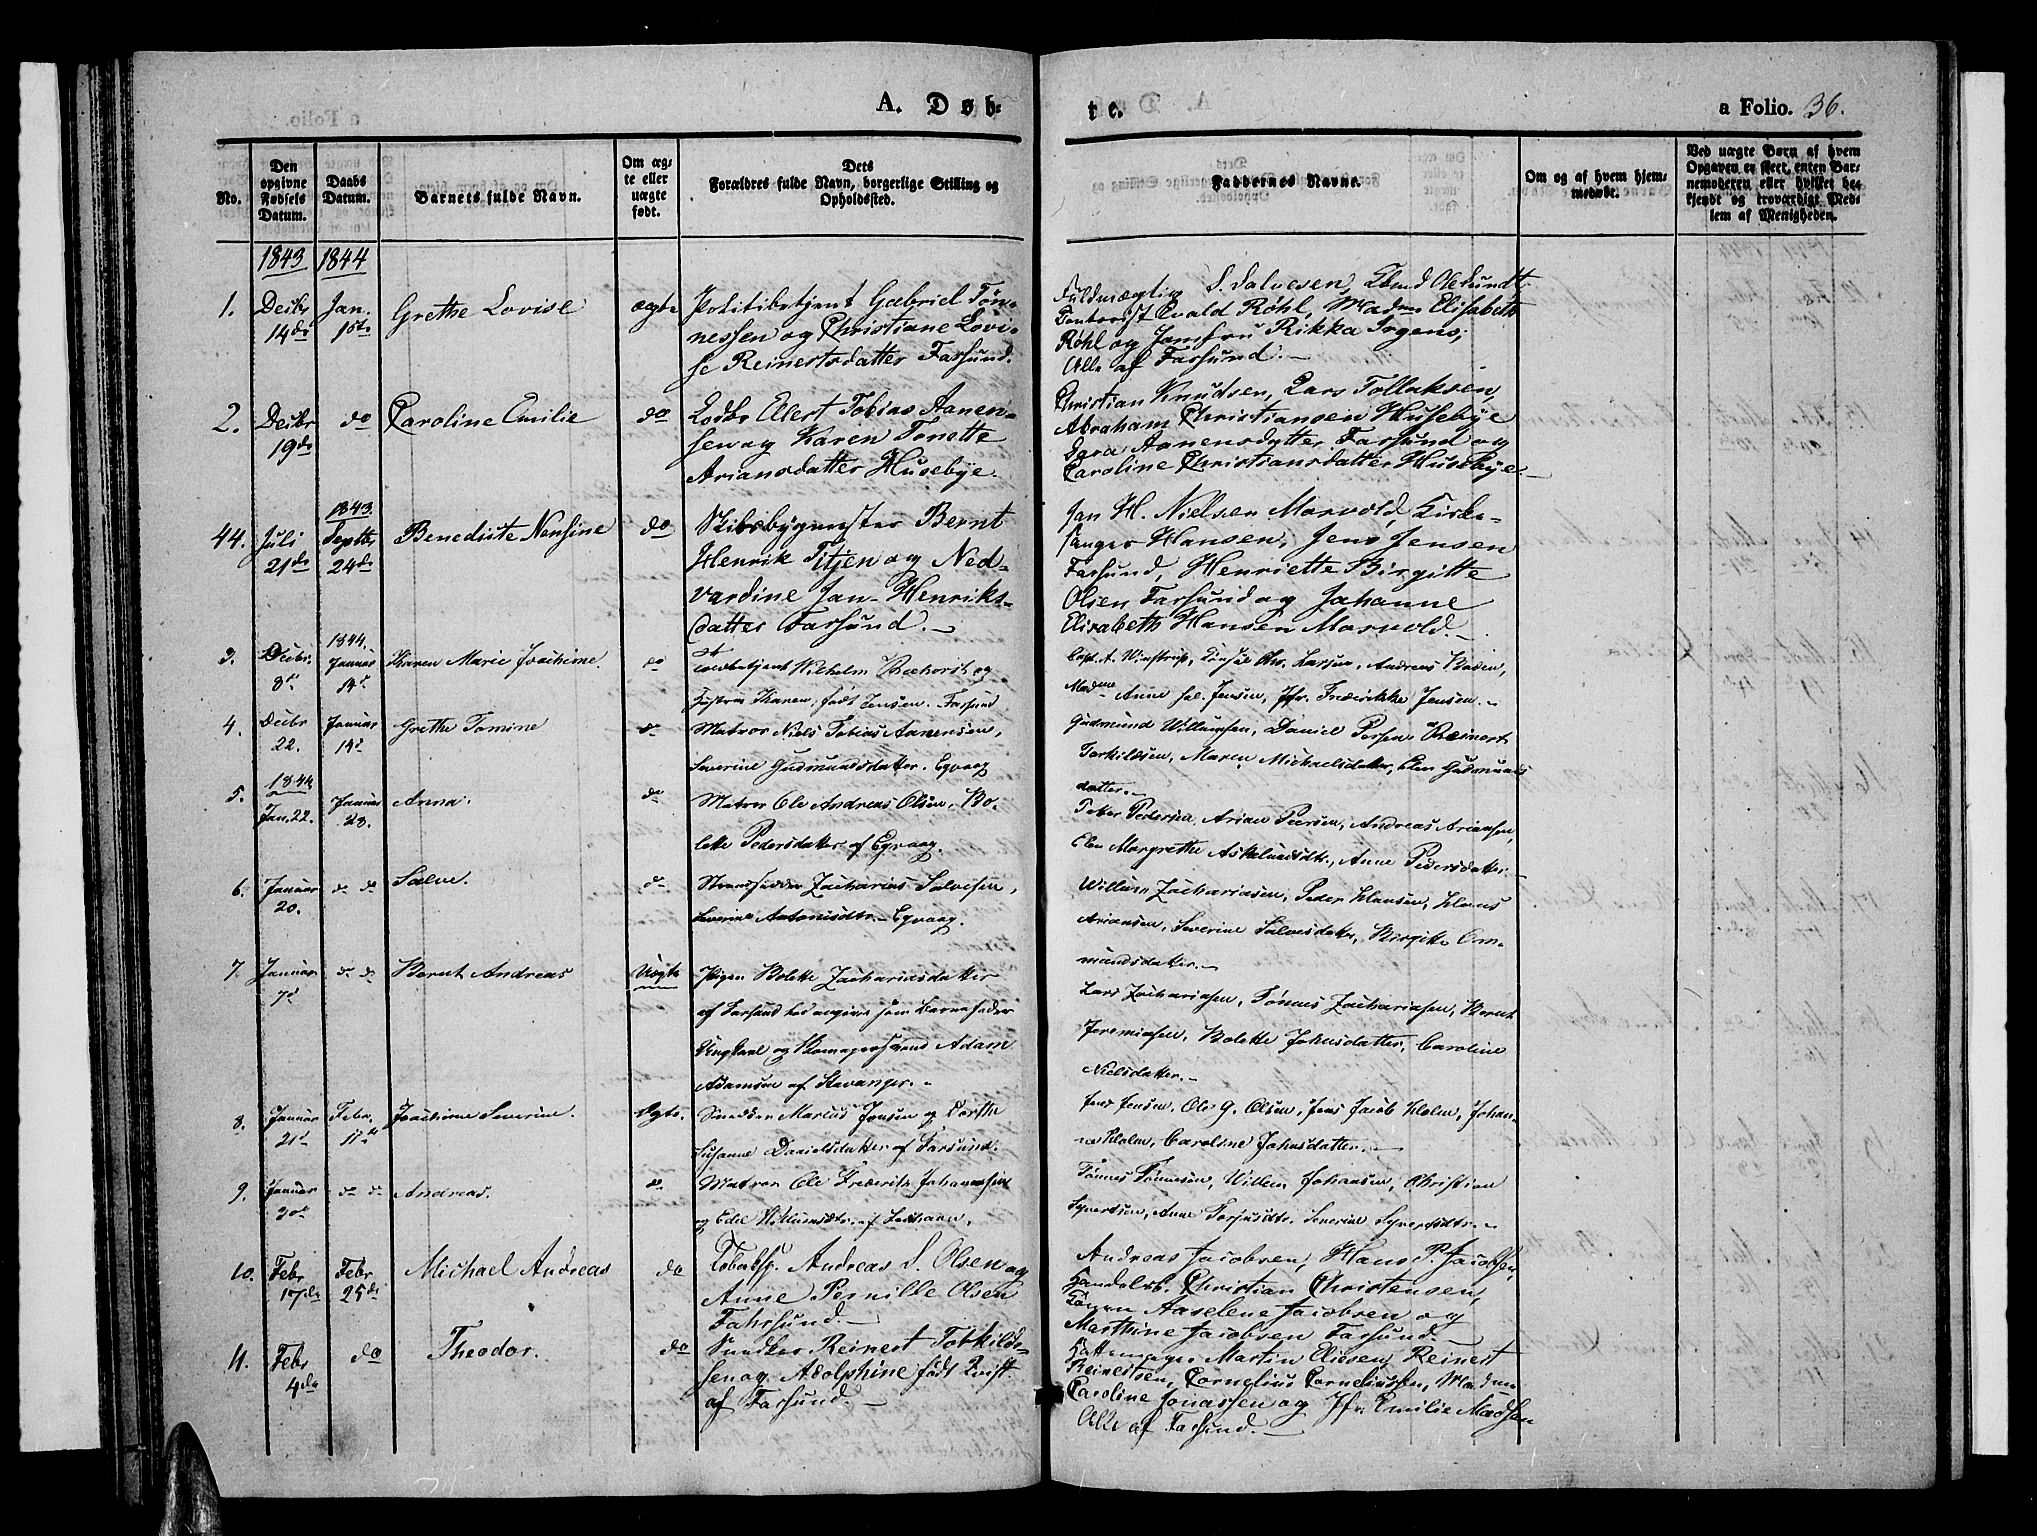 A. Døb=
te.
a Folio. 36.
No.
Den opgivne Fødsels Datum.
Daabs Datum.
Barnets fulde Navn.
Om ægte eller uægte født.
Dets Forældres fulde Navn, borgerlige Stilling og Opholdssted.
Faddernes Navne.
Om og af hvem hjemmedøbt.
Ved uægte Børn af hvem Opgaven er skeet, enten Barnemoderen eller hvilket bekjendt og troværdigt Medlem af Menigheden.
1843 1844
1. Decbr 14de Jan. 1ste Grethe Lovise ægte
Politibetjent Gabriel Tøn-
nessen og Christiane Lovi-
se Reinertsdatter Farsund.
Fuldmægtig S. Salvesen,
Contorist Evald Røhl, Madm Elisabeth
Røhl og Jomfru Rikka
Alle af Farsund.
2. Decbr 19de do Caroline Emilie do
Lods Ellert Tobias Aanen-
sen og Karen Tonette
Ariansdatter Husebye.
Christian Knudsen, Lars Tollaksen,
Abraham Christiansen Husebye
Sara Aanensdatter Farsund og
Caroline Christiansdatter Husebye.
44. Juli 21de 1843. Septbr 24de Benedicte Nensine do
Skibsbygmester Bernt
Henrik Titjen og Ned-
vardine Jan-Henriks-
datter Farsund.
Jan H. Nielsen Marvold, Kirke-
sanger Hansen, Jens Jensen
Farsund, Henriette Birgitte
Olsen Farsund og Johanne
Elisabeth Hansen Marvold.
3. Decbr. 8de 1844. Januar 14de Karen Marie Joachime. do
Toldbetjent Wilhelm og
Hustru Karen, født Jensen. Farsund
Capt. A. Chr. Larsen, Andreas
Madme Anne sal. Jensen, Jfr. Frederikke Jensen.
4. Decbr 22. Januar 14de Grethe Tomine do
Matros Niels Tobias Aanensen,
Severine Gudmundsdatter. Egvaag
Gudmund Willumsen, Daniel Persen, Reinert
Torkildsen, Maren Michaelsdatter, Elen Gudmunds
datter.
5. 1844 Jan. 22. Januar 28. Anna. do
Matros Ole Andreas Olsen, Bo-
lette Pedersdatter af Egvaag.
Peter Pedersen, Arian Peersen, Andreas Ariansen,
Elen Margrethe Askelundsdtr., Anne Pedersdatter.
6. Januar 20. do do Salve. do
Strandsidder Zacharias Salvesen,
Severine Antonisdtr. Egvaag.
Willum Zachariasen, Peder Klausen, Klaus
Ariansen, Severine Salvesdatter, Birgitte Om-
mundsdatter.
7. Januar 7de do do Bernt Andreas Uægte
Pigen Bolette Zachariasdatter
af Farsund har angivet som Barnefader
Ungkarl og Adam
Adamsen af Stavanger.
Lars Zachariasen, Tønnes Zachariasen, Bernt
Jeremiasen, Bolette Johnsdatter, Caroline
Nielsdatter.
8. Januar 21de Febr. 11te Joachime Severine. Ægte.
Smeden Marcus Jensen og Dorthe
Susanne Danielsdatter af Farsund.
Jens Jensen, Ole G. Olsen, Jens Jacob Holm, Johan-
ne Holm, Caroline Johnsdatter.
9. Januar do do Andreas. do
Matros Ole Frederik Johannesen
og Edel Willumsdtr. af
Tønnes Tønnesen, Willem Johansen, Christian
Syvertsen, Anne Torjusdtr. Severine Syvertsdtr.
10. Febr 17de Febr 25de Michael Andreas do
Andreas S. Olsen og
Anne Pernille Olsen
Fahrsund.
Andreas Jacobsen, Hans P. Jacobsen,
Handelsb. Christian Christensen,
Aaselene Jacobsen og
Marthine Jacobsen Farsund.
11. Febr 4de do Theodor. do
Snedker Reinert Torkild-
sen og Adolphine født Qvist
af Farsund.
Hattemager Martin Eliesen, Reinert
Reinertsen, Cornelius Corneliussen, Madam
Caroline Jonassen og Jfr. Emilie Madsen
Alle af Farsund.